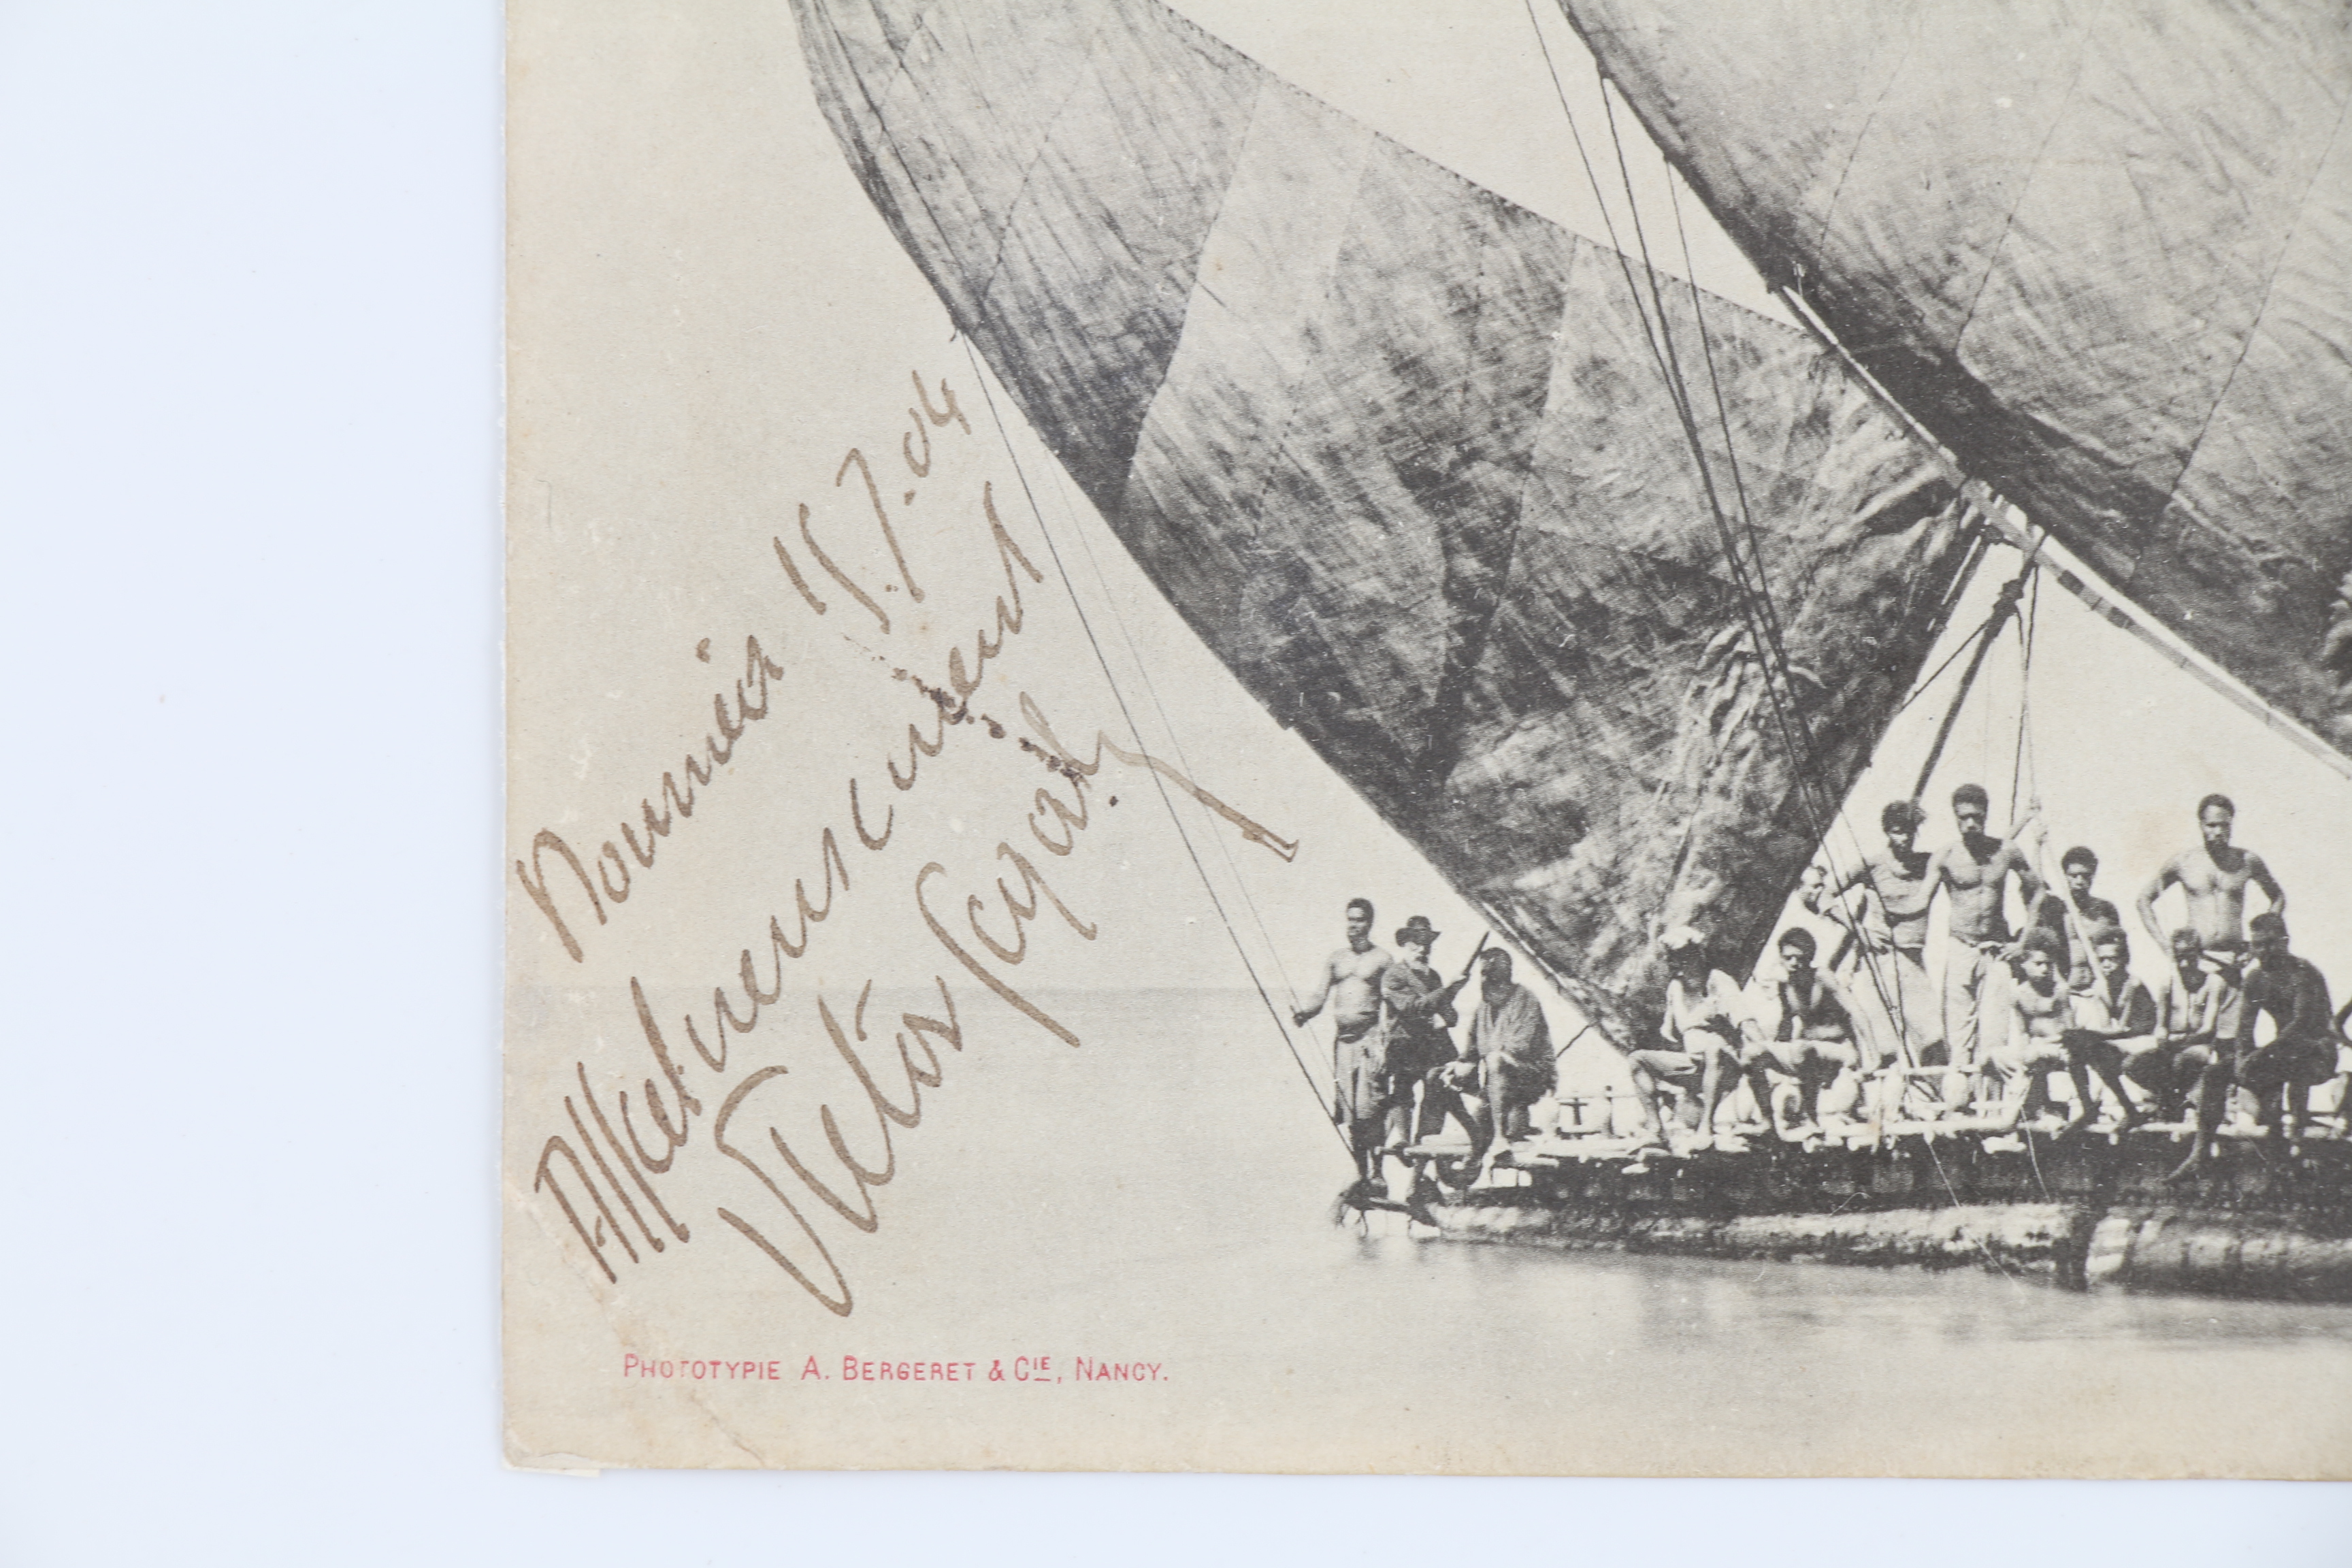 Nouméa 15.7.04
Affectueusement
Victor
PHOTOTYPIE A. BERGERET & CIE, NANCY.